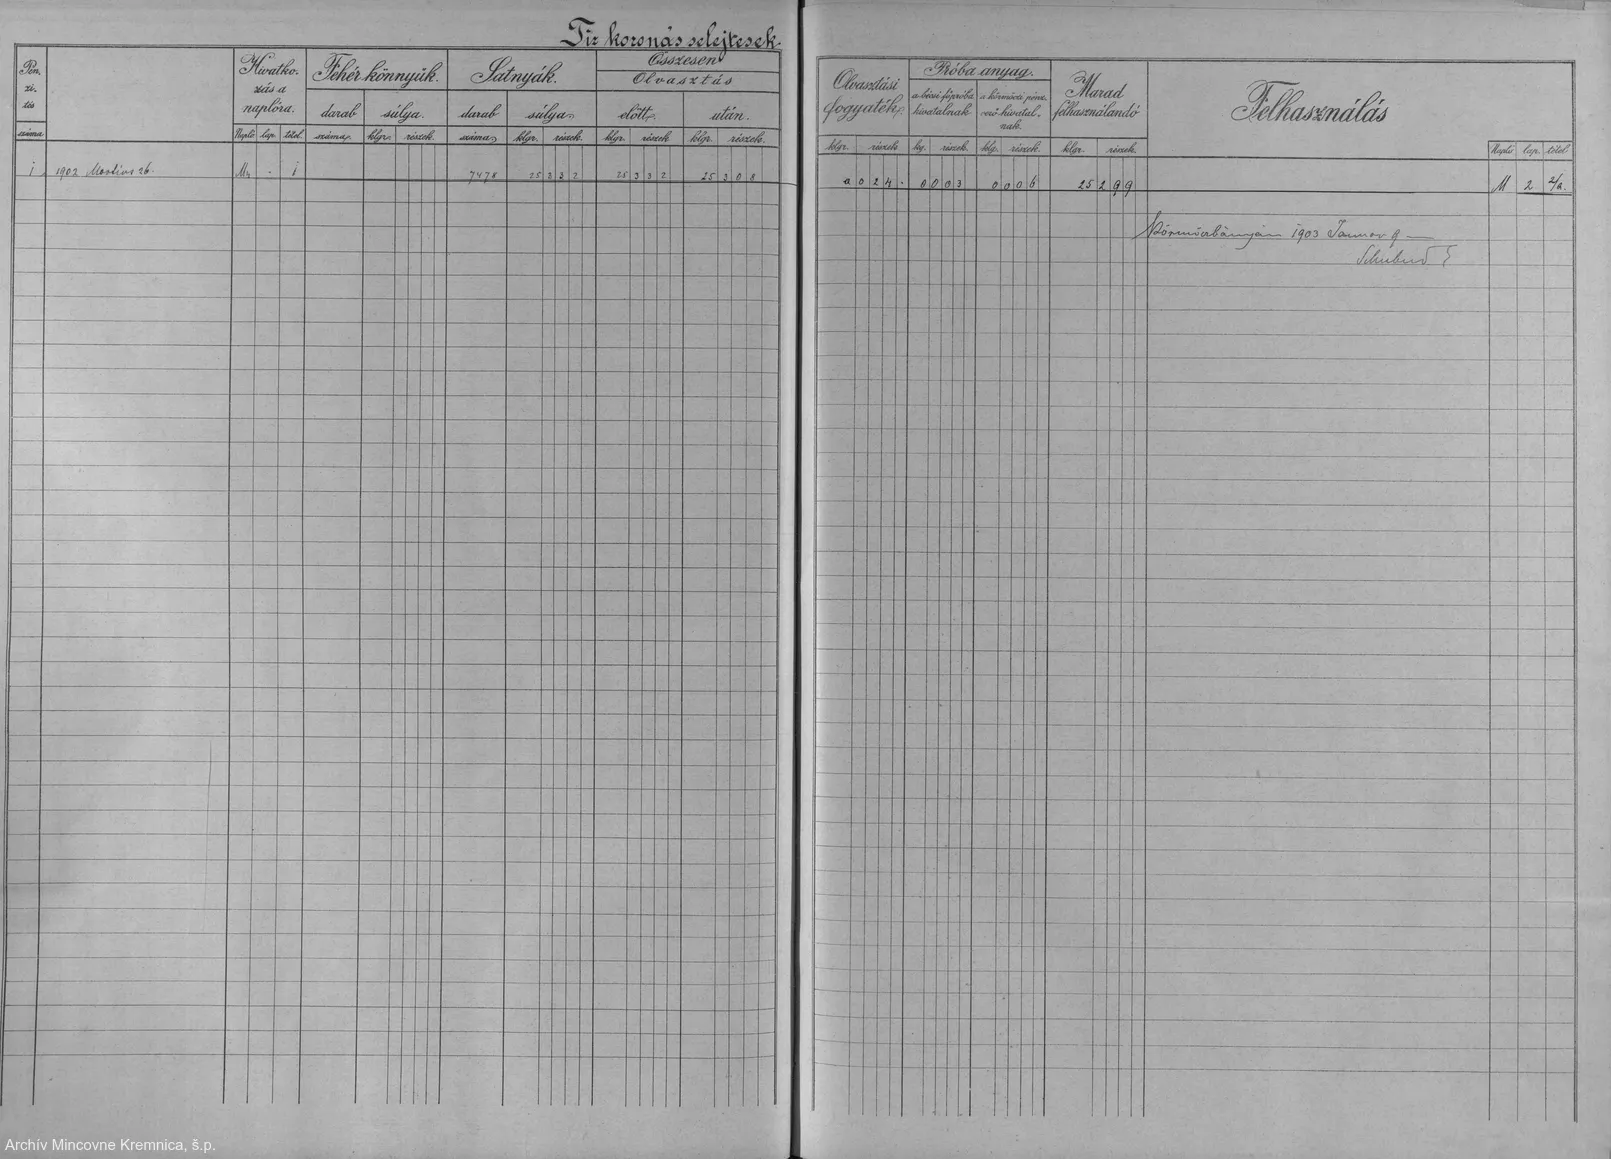 Tíz koronás selejtesek.
Pen.
zi-
tás
száma
Hivatko-
zás a
naplóra.
Napló lap. tétel.
Fehér könnyük.
darab súlya.
száma. klgr. részek.
Satnyák.
darab súlya.
száma. klgr. részek.
Összesen
Olvasztás
előtt. után.
klgr. részek klgr. részek.
1 1902 Martius 26. - 1 7478 25 332 25 332 25 308
Olvasztási
fogyaték.
klgr. részek
Próba anyag.
a bécsi főpróba
hivatalnak
kg. részek.
a körmöczi pénz-
verő hivatal-
nak.
klg. részek.
Marad
felhasználandó
klgr. részek.
Felhasználás
Napló lap. tétel
024 - 0 003 0 006 25 299 M 2 2/a.
Körmöcbányán 1903 Januar 9
Archív Mincovne Kremnica, š.p.